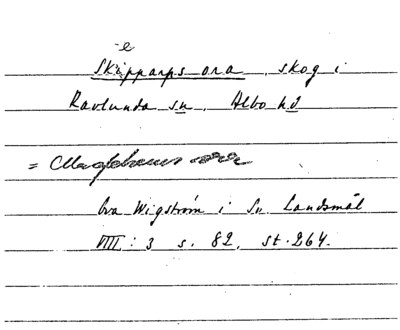 e
Skipparps ora, skog i
Ravlunda sn, Albo hd
=
Eva Wigström i Sv. Landsmål
VIII:3 s. 82, st. 264.